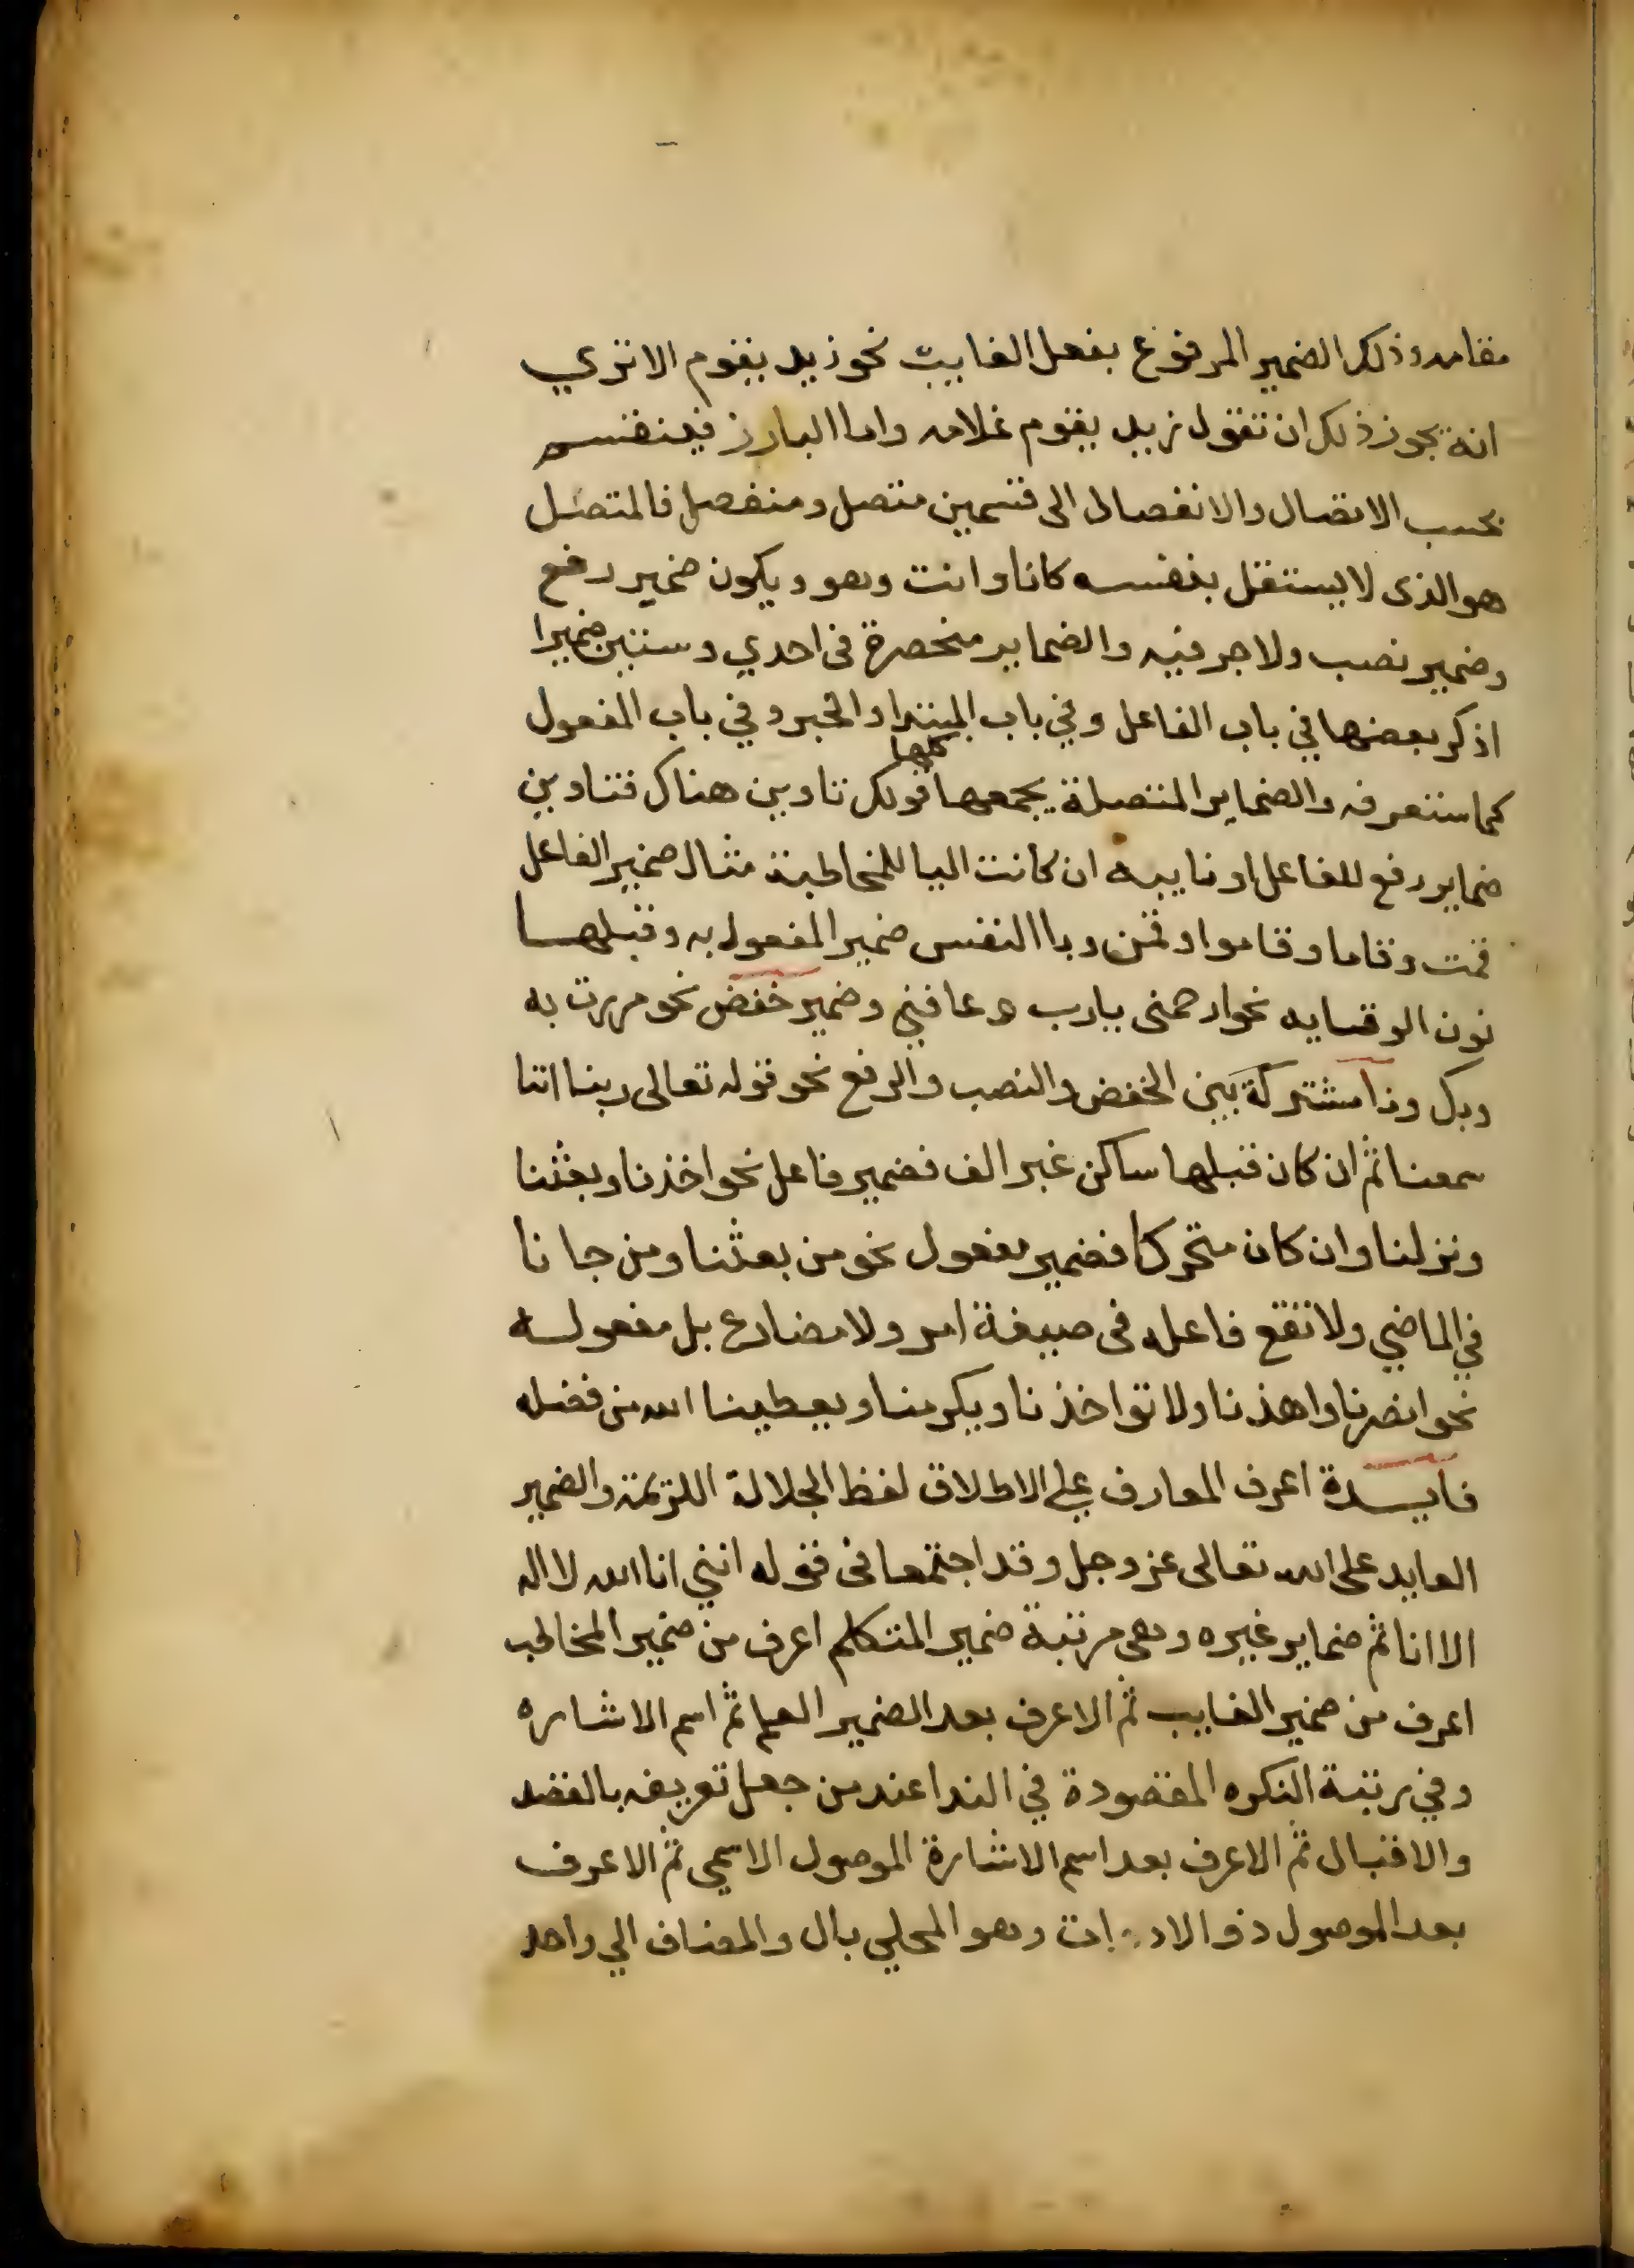 مقامه وذلك الضمير المرفوع بفعل الغايب نحو زيد يقوم الا ترى
انه يجوز ذلك ان تقول زيد يقوم غلامه واما البارز فينقسم
بحسب الاتصال والانفصال الى قسمين متصل ومنفصل فالمتصل
هو الذى لا يستقل بنفسه كانا وانت وهو ويكون ضمير رفع
وضمير نصب ولا جر فيه والضماير منحصرة فى احدي وستين ضميرا
اذكر بعضها في باب الفاعل وفي باب المبتدا والخبر وفي باب المفعول
كما ستعرفه والضماير المتصلة يجمعها كلها قولك تاوين هناك فتاوين
ضماير رفع للفاعل او نايبه ان كانت اليا للمخاطبة مثال ضمير الفاعل
قمت وقاما وقاموا وقمن ويا النفس ضمير المفعول به وقبلها
نون الوقايه نحو ارحمنى يارب وعافني وضمير خفض نحو مررت به
وبك ونا مشتركة بين الخفض والنصب والرفع نحو قوله تعالى ربنا اننا
سمعنا ثم ان كان قبلها ساكن غير الف فضمير فاعل نحو اخذنا وبعثنا
ونزلنا وان كان متحركا فضمير مفعول نحو من بعثنا ومن جا نا
في الماضي ولا تقع فاعله فى صيغة امر ولا مضارع بل مفعوله
نحو انصرنا واهدنا ولا تواخذنا ويكرمنا ويعطينا الله من فضله
فايدة اعرف المعارف علي الاطلاق لفظ الجلالة الكريمة والضمير
العايد على الله تعالى عز وجل وقد اجتمعا فى قوله انني انا الله لا اله
الا انا ثم ضماير غيره وهى مرتبة ضمير المتكلم اعرف من ضمير المخاطب
اعرف من ضمير الغايب ثم الاعرف بعد الضمير العلم ثم اسم الاشاره
وفي رتبة النكره المقصودة في الندا عند من جعل تعريفه بالقصد
والاقبال ثم الاعرف بعد اسم الاشارة الموصول الاسمي ثم الاعرف
بعد الموصول ذو الادوات وهو المحلي بال والمضاف الي واحد